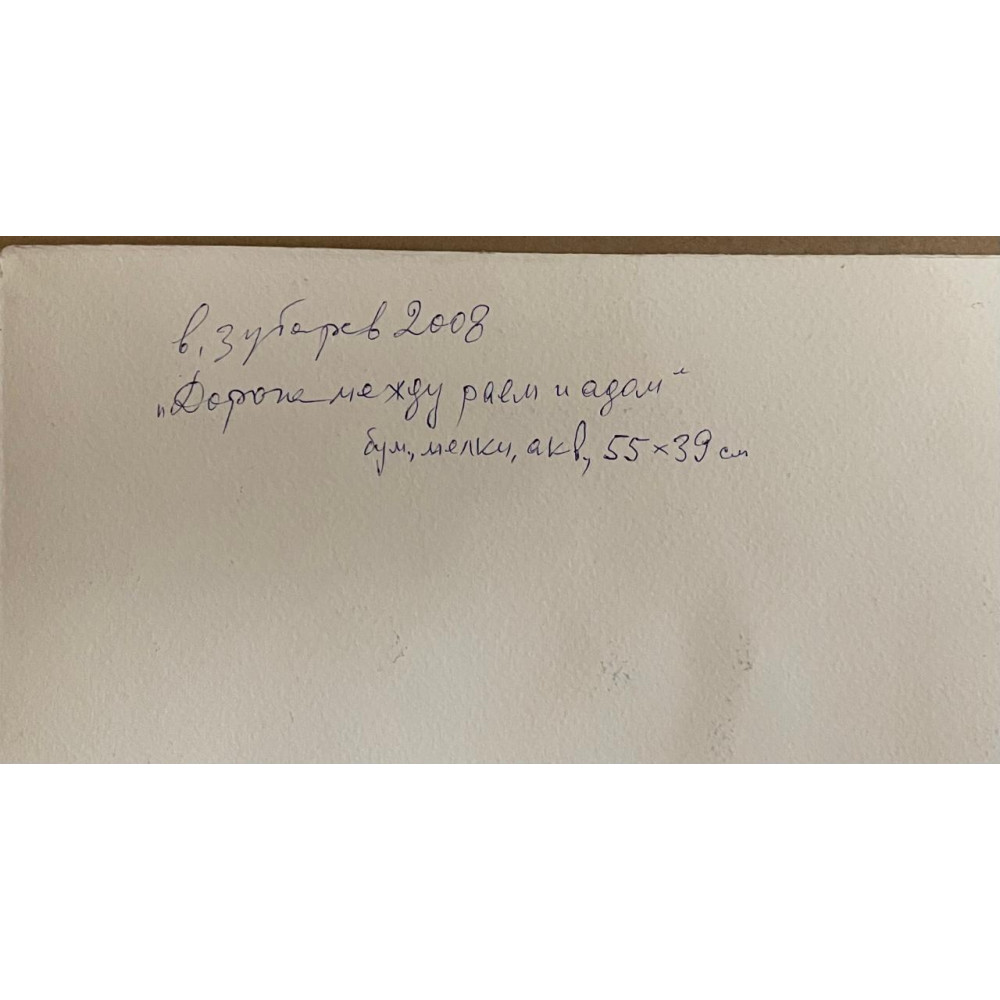 В. Зубарев 2008
„Дорога между раем и адом“
бум., мелки, акв, 55×39 см